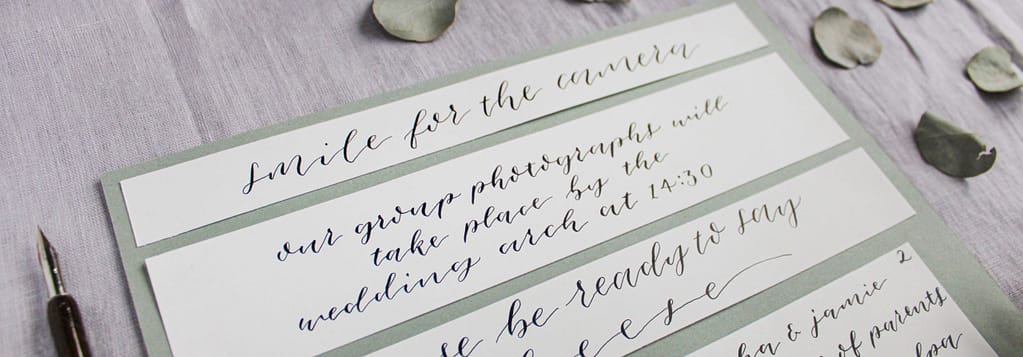 smile for the camera
our group photographs will
take place by the
wedding arch at 14:30
be ready to say
2
& jamie
of parents